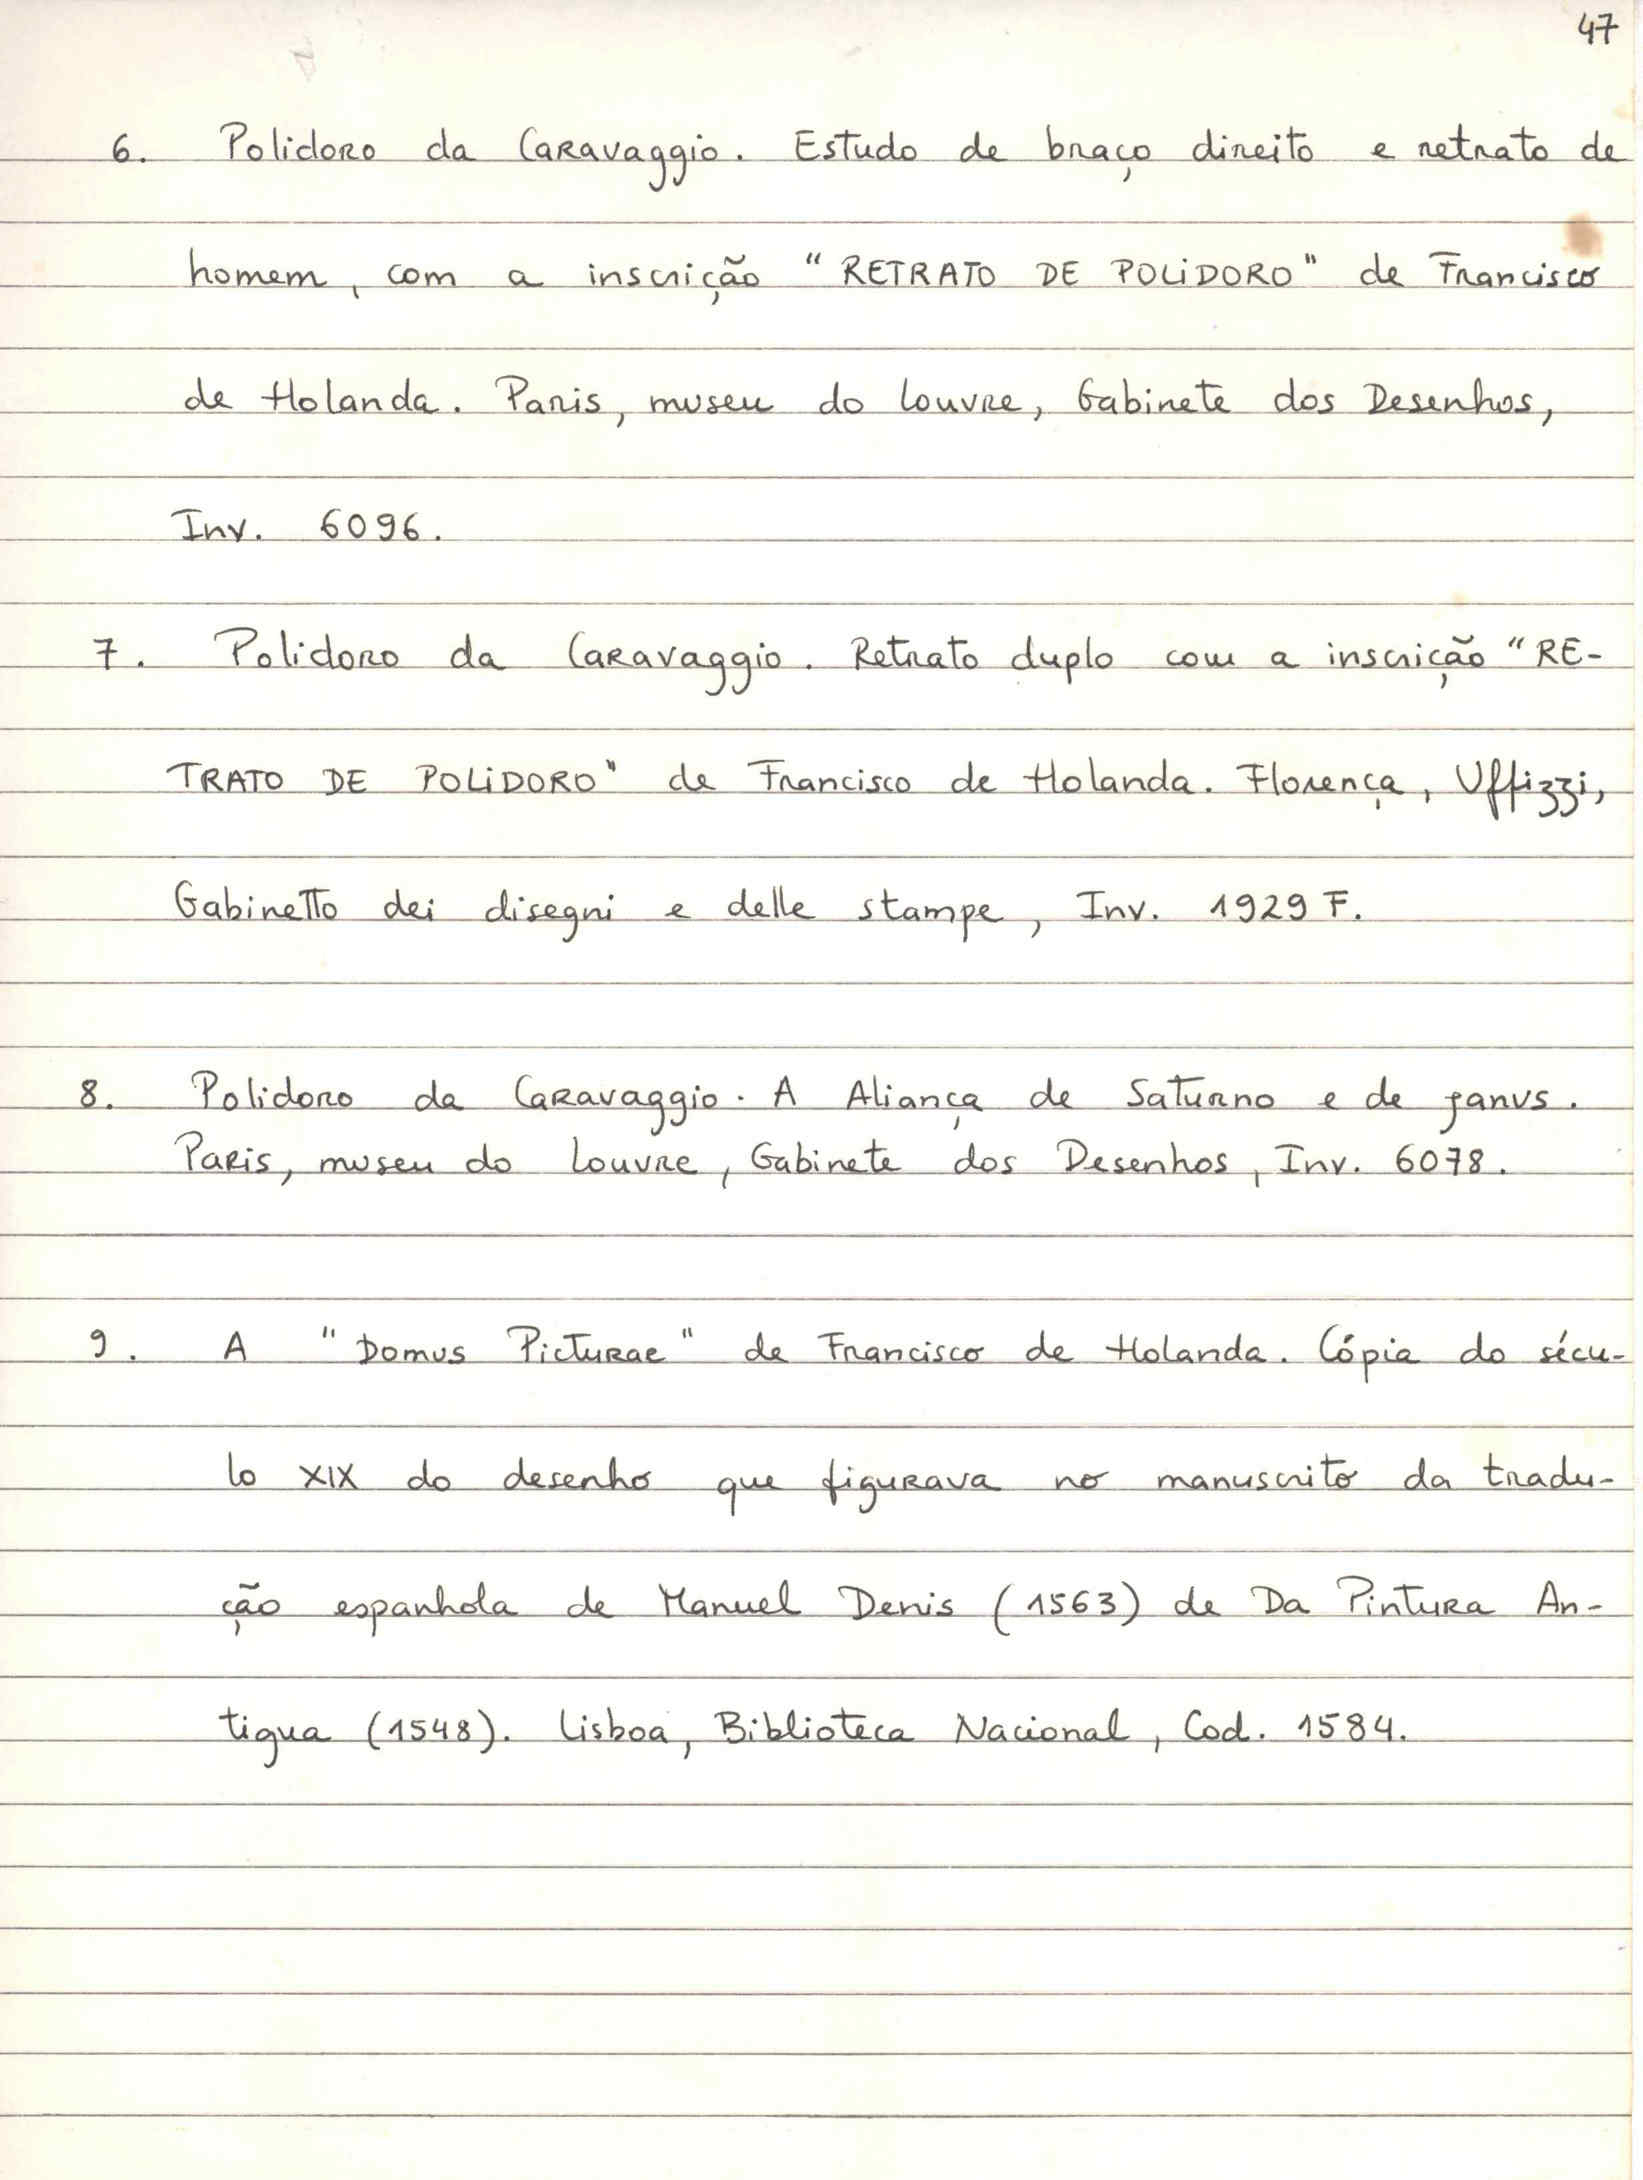 47
6. Polidoro da Caravaggio. Estudo de braço direito e retrato de
homem, com a inscrição "RETRATO DE POLIDORO" de Francisco
de Holanda. Paris, museu do Louvre, Gabinete dos Desenhos,
Inv. 6096.
7. Polidoro da Caravaggio. Retrato duplo com a inscrição "RE-
TRATO DE POLIDORO" de Francisco de Holanda. Florença, Uffizzi,
Gabinetto dei disegni e delle stampe, Inv. 1929 F.
8. Polidoro da Caravaggio. A Aliança de Saturno e de Janus.
Paris, museu do Louvre, Gabinete dos Desenhos, Inv. 6078.
9. A "Domus Picturae" de Francisco de Holanda. Cópia do sécu-
lo XIX do desenho que figurava no manuscrito da tradu-
ção espanhola de Manuel Denis (1563) de Da Pintura An-
tigua (1548). Lisboa, Biblioteca Nacional, Cod. 1584.